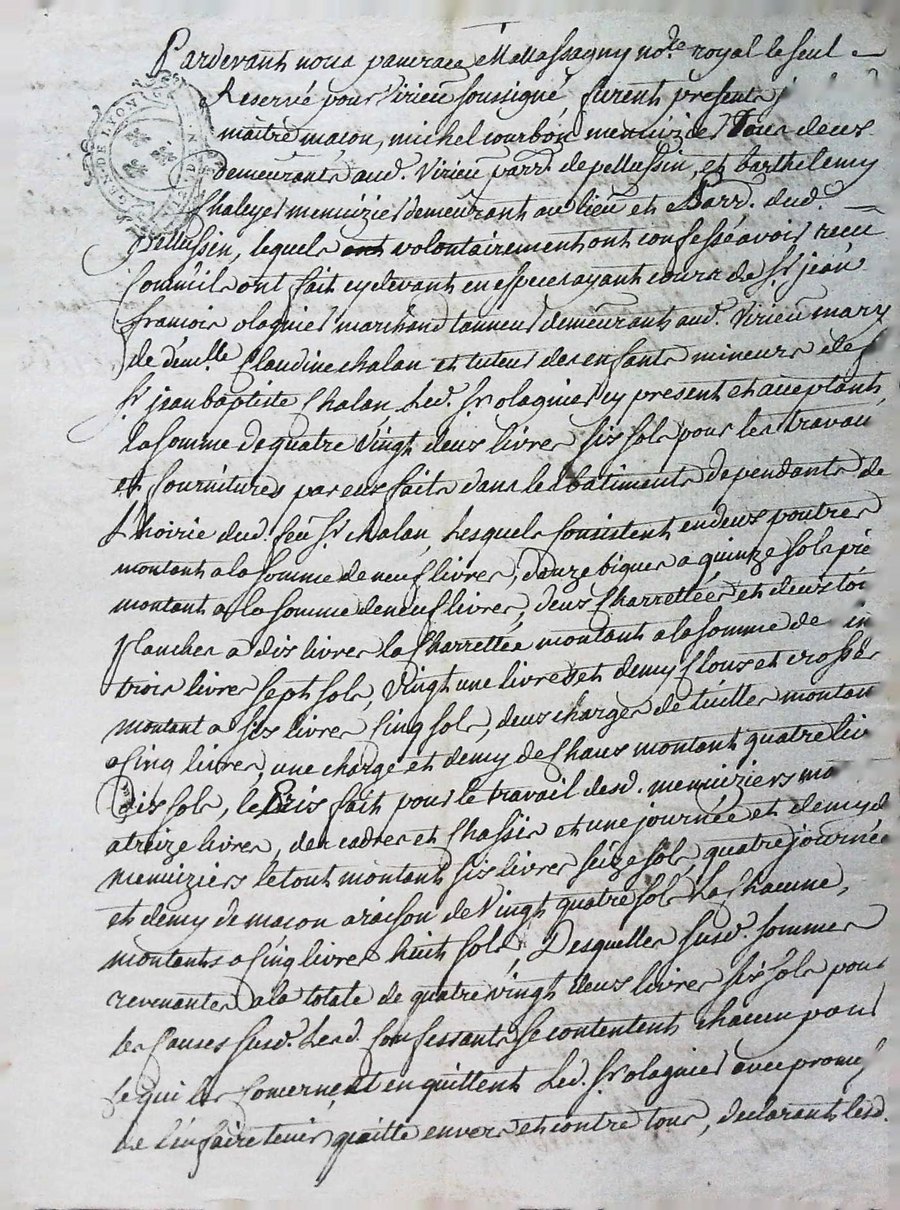 Pardevant nous pancrace Mattassagny no.re royal le seul
Reservé pour Virieu soussigné, furent presents j
maitre macon, michel courbon menuizier Tous deux
demeurants aud. Virieu parr. de pellussin, et barthelemy
Chaleyer menuizier demeurant au lieu et Parr. dud.
pellussin, lequels volontairement ont confessé avoir receu
Comm'ils ont fait cydevant en especes ayant cours de Sr. jean
francois olagnier marchand tanneur demeurant aud. Virieu mary
de d'eu.lle Claudine chalan et tuteur des enfants mineurs de f
Sr. jean baptiste Chalan Led. Sr. olagnier cy present et acceptant
la somme de quatre vingt deux livres six sols pour les travau
et fournitures par eux faits dans les batiments dependants de
L'hoirie dud. feu Sr. chalan, Lesquels Consistent en deux poutres
montant a la somme de neuf livres, douze bigues a quinze sols pie
montant a la somme de neuf livres, deux Charrettées et deux toi
planches a dix livres la Charrettée montant a la somme de in
trois livres sept sols, Vingt une livres et demy Clous et crosses
montant a six livres Cinq sols, deux charges de tuilles montan
a Cinq livres, une charge et demy de Chaux montant quatre liv
dix sols, le Prix fait pour le travail desd. menuiziers mo
a treize livres, des cadres et Chassis et une journée et demy d
menuiziers le tout montant six livres seize sols, quatre journée
et demy de macon a raison de Vingt quatre sols La Chacune,
montants a Cinq livres huit sols, Desquelles susd. sommes
revenantes a la totale de quatre vingt deux livres six sols pour
les Causes susd. Lesd. Confessants se contentent chacun pour
ce qui les Concernent en quittent Led. Sr. olagnier avec promes
de l'en faire tenir quitte envers et contre tous, declarant lesd.
GEN. DE LYON